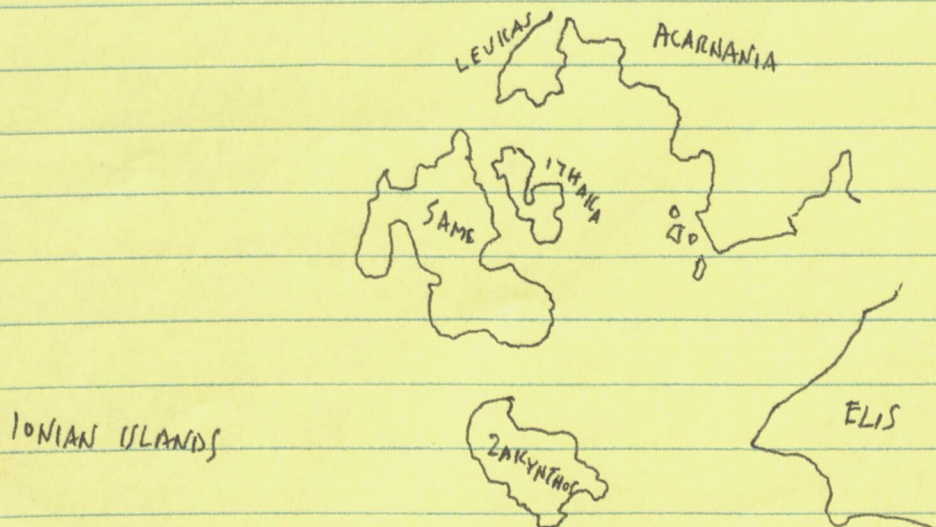 LEUKAS
ACARNANIA
ITHAKA
SAME
IONIAN ISLANDS
ZAKYNTHOS
ELIS